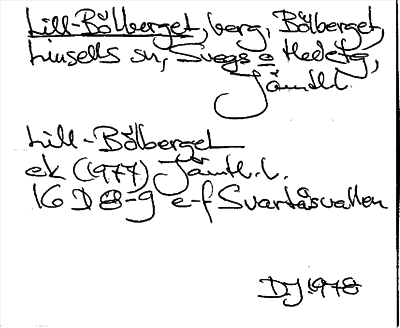 Lill-Bölberget, berg, Bölberget,
Linsells sn, Svegs o Hede tg,
Jämtl.
Lill-Bölberget
ek (1977) Jämtl. l.
16 D 8-9 e-f Svartåsvallen
DJ 1978